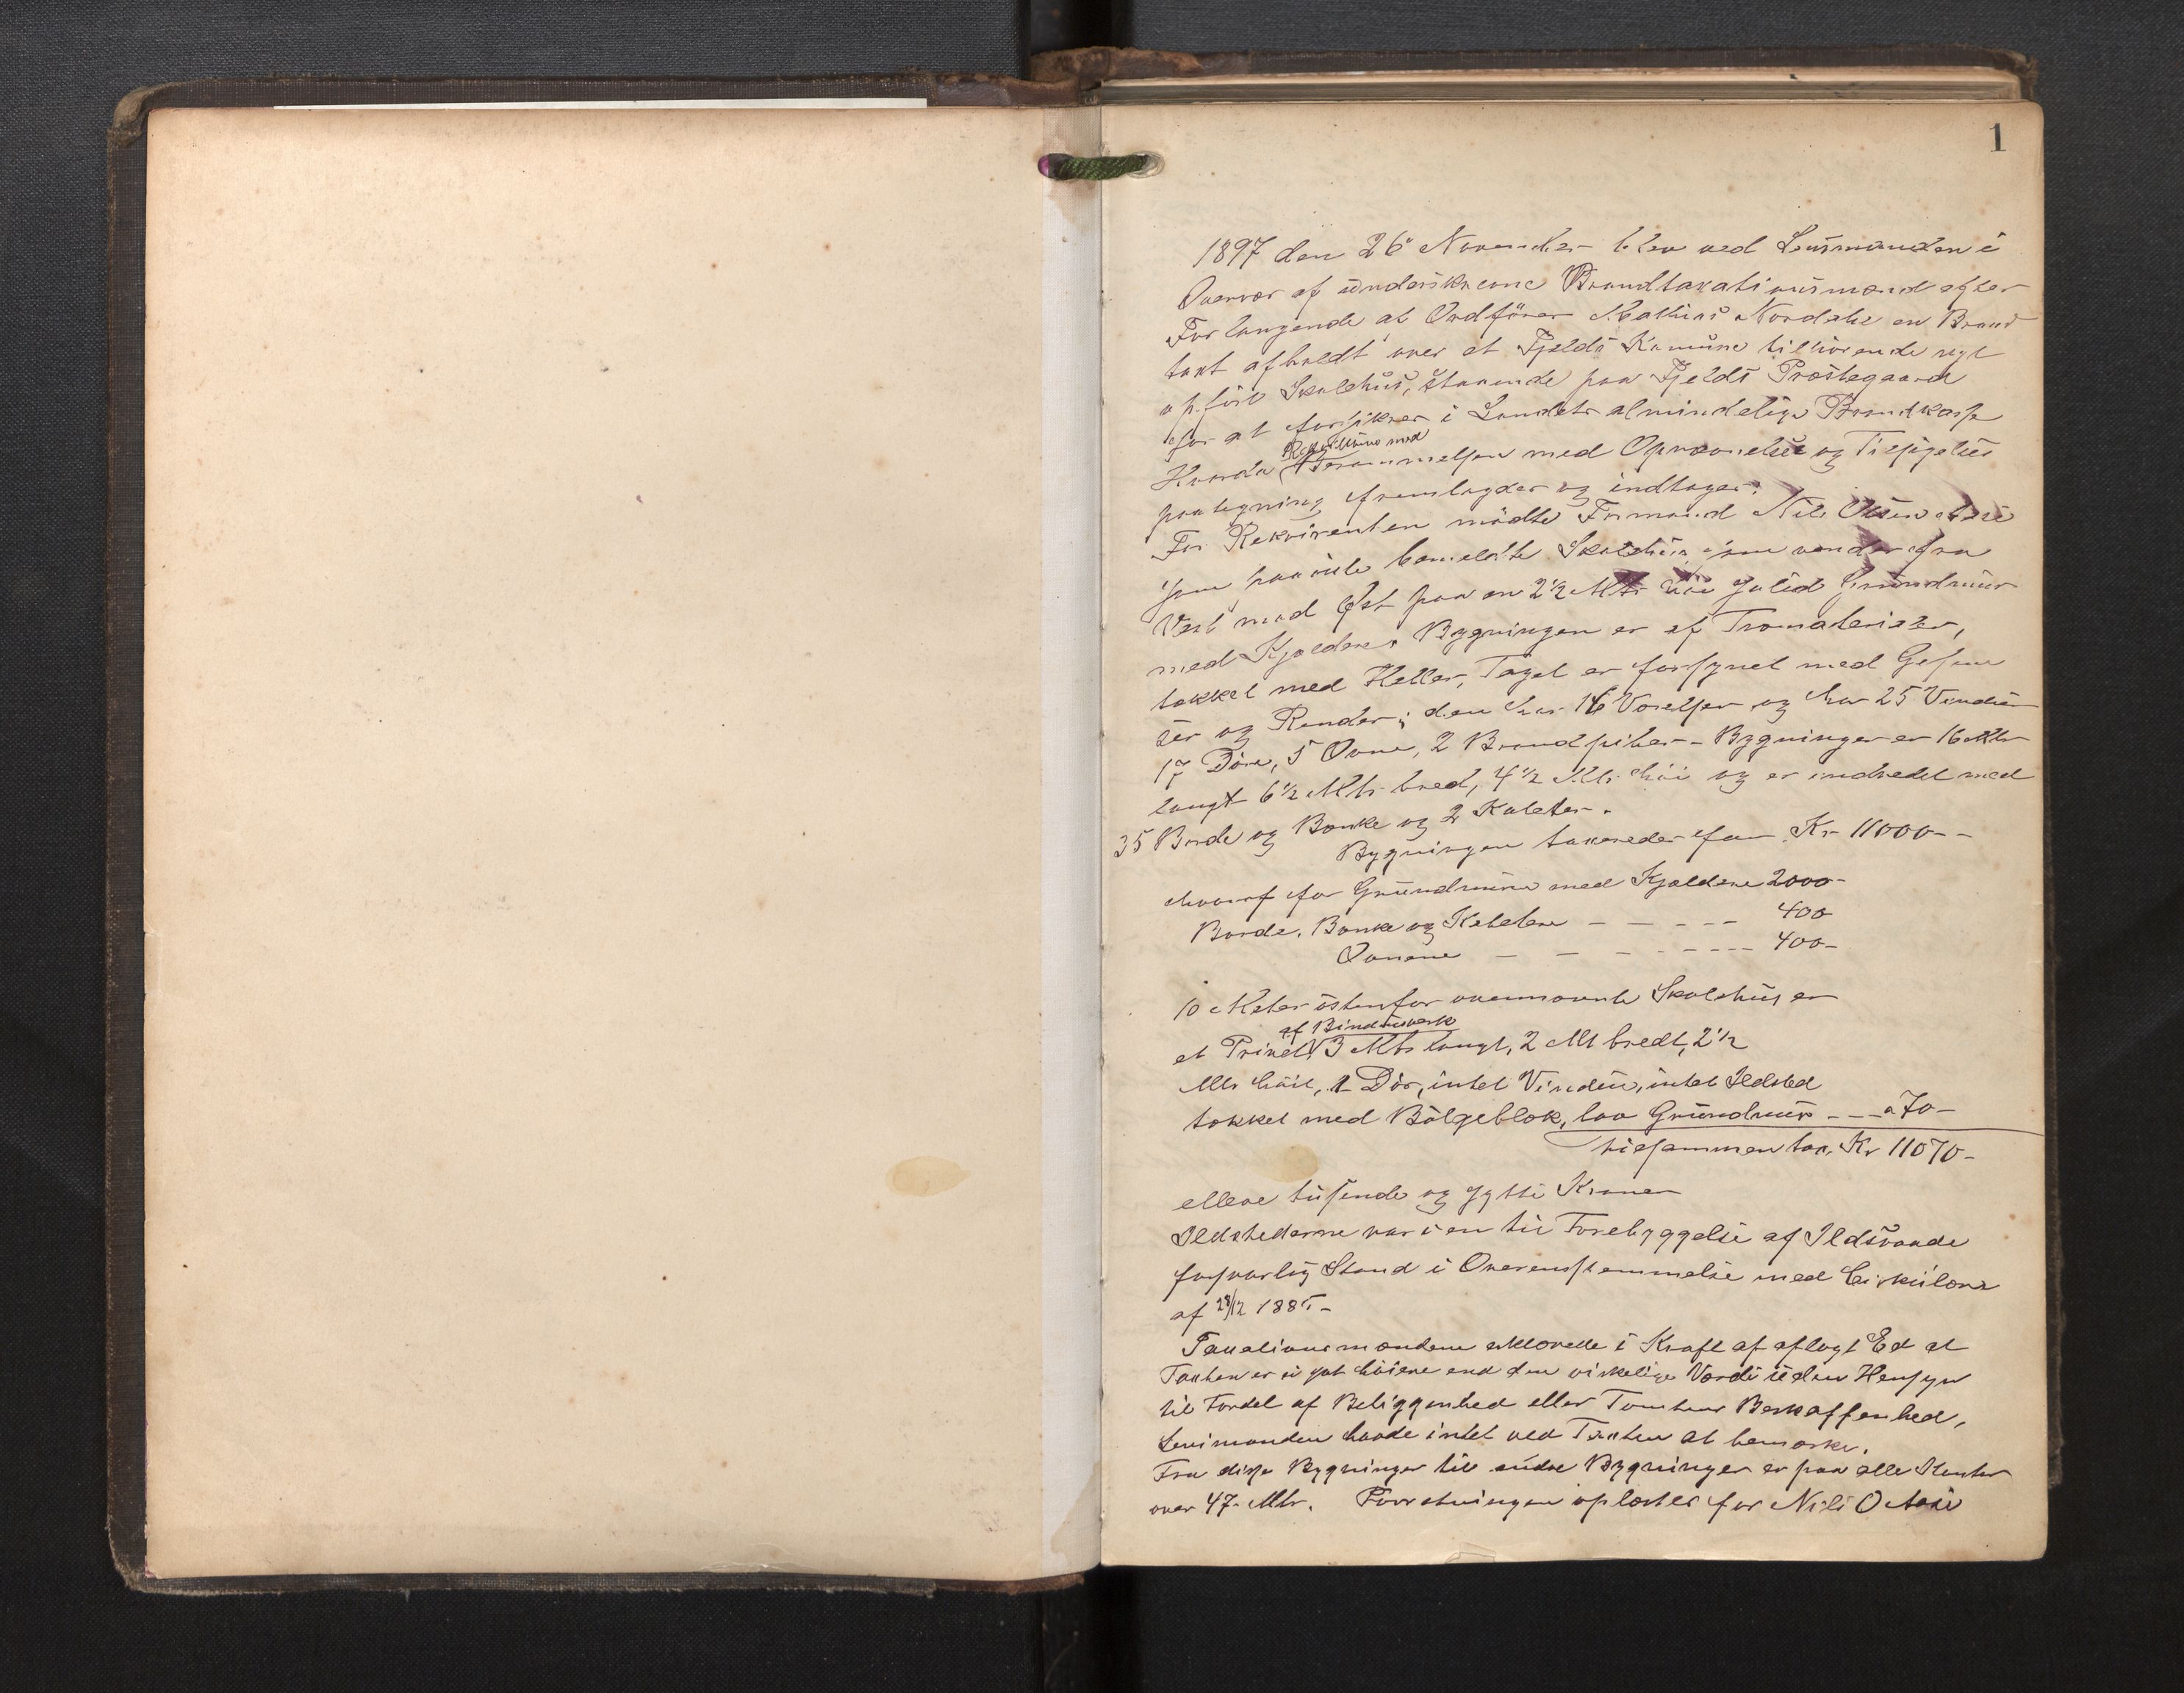 1
1897 den 26 November blev ved Lensmanden i
Overvær af underskrevne Brandtaxationsmænd efter
Forlangende af Ordfører Mathias Nordahl en Brand
taxt afholdt over et Fjelds Komune tilhørende nyt
opført Skolehus, staaende paa Fjelds Præstegaard
for at forsikres i Landets almindelige Brandkasse
Rekvisition med
Hvorda Berammelsen med Opnævnelse og Tilsigelses
paategning fremlagdes og indtages:
For Rekvirenten mødte Formand Nils
som paaviste bemeldte Skolehus, som vender fra
Vest mod Øst paa en 2½ Mtr høi solid Grundmur
med Kjeldere. Bygningen er af Træmaterialer,
tækket med Heller, Taget er forsynet med Gesim
ser og Render; den har 16 Værelser og har 25 Vinduer
17 Døre, 5 Ovne, 2 Brandpiber - Bygningen er 16 Mtr
langt 6½ Mtr bred, 4½ Mtr høi og er indredet med
35 Borde og Bænke og 2 Kateter.
Bygningen taxeredes for Kr 11000 - -
hvoraf for Grundmuren med Kjeldere 2000 -
Borde, Bænke og Katetere - - - - - 400
Ovnene - - - - - - - 400 -
10 Meter østenfor ovennævnte Skolehus er
af Bindingsverk
et Privet 3 Mtr langt, 2 Mt bredt, 2½
Mtr høit, 1 Dør, intet Vindu, intet Ildsted
tækket med Bølgeblik, lav Grundmur - - - a 70 -
tilsammen tax. Kr 11070 -
elleve tusende og sytti Kroner
Ildstederne var i en til Forebyggelse af Ildsvaade
forsvarlig Stand i Overensstemmelse med Cirkulære
af 28/12 1885 -
Taxationsmændene erklærede i Kraft af aflagt Ed at
Taxten er ei sat høiere end den virkelige Værdi uden Hensyn
til Fordel af Beliggenhed eller Tomtens Beskaffenhed,
Lensmanden havde intet ved Taxten at bemærke.
Fra disse Bygninger til andre Bygninger er paa alle Kanter
over 47 Mtr. Forretningen oplæstes for Nils O